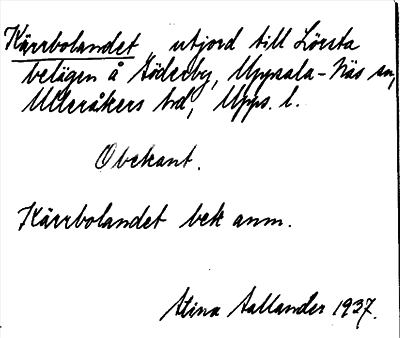 Kärrbolandet, utjord till Lörsta
belägen å Söderby, Uppsala-Näs sn,
Ulleråkers hd, Upps. l.
Obekant.
Kärrbolandet bek anm.
Stina Sallander 1937.